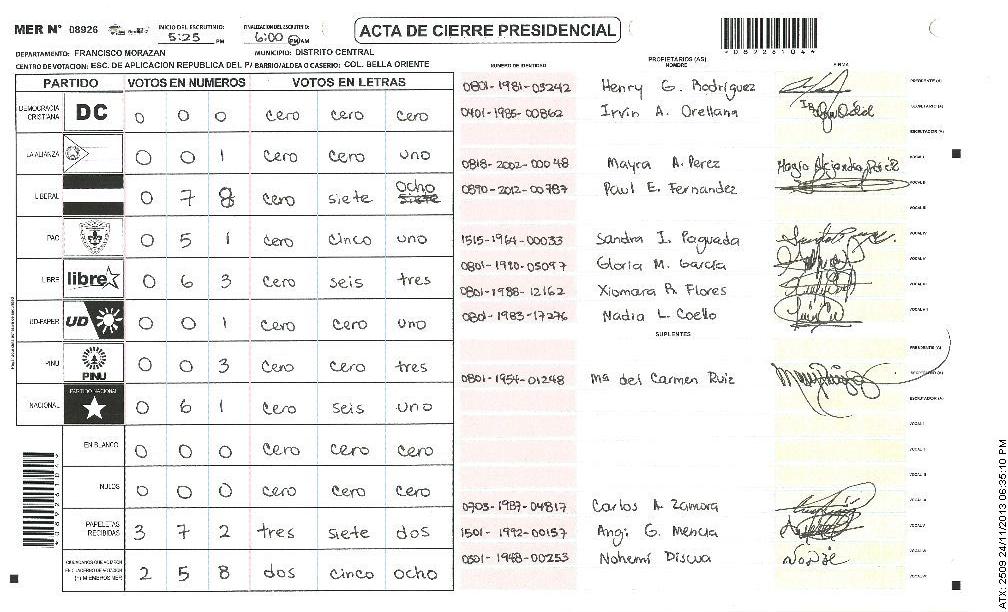 MER Nº 08926 INICIO DEL ESCRUTINIO: 5:25 PM FINALIZACION DEL ESCRUTINIO: 6:00 PM AM
ACTA DE CIERRE PRESIDENCIAL
DEPARTAMENTO: FRANCISCO MORAZAN MUNICIPIO: DISTRITO CENTRAL
CENTRO DE VOTACION: ESC. DE APLICACION REPUBLICA DEL P/ BARRIO/ALDEA O CASERIO: COL. BELLA ORIENTE
PARTIDO VOTOS EN NUMEROS VOTOS EN LETRAS
DEMOCRACIA CRISTIANA DC 0 0 0 cero cero cero
LA ALIANZA 0 0 1 cero cero uno
LIBERAL 0 7 8 cero siete ocho siete
PAC 0 5 1 cero cinco uno
LIBRE libre 0 6 3 cero seis tres
UD-FAPER UD 0 0 1 cero cero uno
PINU PINU 0 0 3 cero cero tres
NACIONAL PARTIDO NACIONAL 0 6 1 cero seis uno
EN BLANCO 0 0 0 cero cero cero
NULOS 0 0 0 cero cero cero
PAPELETAS RECIBIDAS 3 7 2 tres siete dos
2 5 8 dos cinco ocho
PROPIETARIOS (AS)
NUMERO DE IDENTIDAD NOMBRE FIRMA
0801-1981-03242 Henry G. Rodriguez PRESIDENTE (A)
0401-1985-00862 Irvin A. Orellana SECRETARIO (A)
ESCRUTADOR (A)
0818-2002-00048 Mayra A. Perez VOCAL I
0890-2012-00787 Paul E. Fernandez VOCAL II
VOCAL III
1515-1964-00033 Sandra I. Paguada VOCAL IV
0801-1990-05097 Gloria M. García VOCAL V
0801-1988-12162 Xiomara R. Flores
0801-1983-17276 Nadia L. Coello
SUPLENTES
PRESIDENTE (A)
0801-1954-01248 Mª del Carmen Ruiz SECRETARIO (A)
ESCRUTADOR (A)
VOCAL I
VOCAL II
VOCAL III
0703-1987-04817 Carlos A. Zamora
1501-1992-00157 Angi G. Mencia VOCAL V
0501-1948-00253 Nohemí Discua
ATX: 2509 24/11/2013 06:35:10 PM